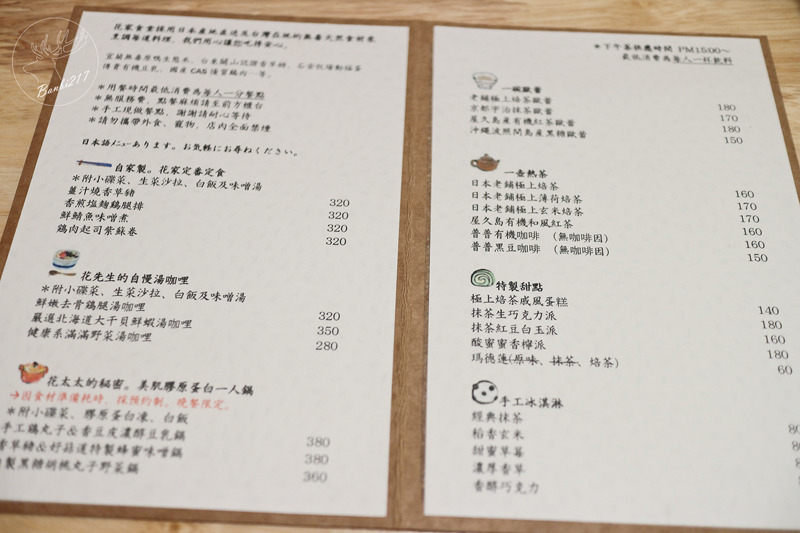 Banbi217
花家食堂採用日本產地直送及台灣在地的無毒天然食材來
烹調每道料理，我們用心讓您吃得安心。
宜蘭無毒厚鴨生態米、台東關山認證香草豬、石安牧場動福蛋
傳貴有機豆乳、國產CAS優質雞肉…等。
＊用餐時間最低消費為每人一分餐點
＊無服務費，點餐麻煩請至前方櫃台
＊手工現做餐點，謝謝請耐心等待
＊請勿攜帶外食、寵物，店內全面禁煙
日本語メニューあります。お気軽にお尋ねください。
自家製。花家定番定食
＊附小碟菜、生菜沙拉、白飯及味噌湯
薑汁燒香草豬 320
香煎塩麹雞腿排 320
鮮鯖魚味噌煮 320
雞肉起司紫蘇卷 320
花先生的自慢湯咖哩
＊附小碟菜、生菜沙拉、白飯及味噌湯
鮮嫩去骨雞腿湯咖哩 320
嚴選北海道大干貝鮮蝦湯咖哩 350
健康系滿滿野菜湯咖哩 280
花太太的秘密。美肌膠原蛋白一人鍋
→因食材準備耗時，採預約制。晚餐限定。
＊附小碟菜、膠原蛋白凍、白飯
手工鷄丸子&香豆皮濃醇豆乳鍋 380
香草豬&好菇道特製蜂蜜味噌鍋 380
製黑糖胡桃丸子野菜鍋 360
＊下午茶供應時間 PM15:00～
最低消費為每人一杯飲料
一碗歐蕾
老鋪極上焙茶歐蕾 180
京都宇治抹茶歐蕾 170
屋久島產有機紅茶歐蕾 180
沖繩波照間島產黑糖歐蕾 150
一壺熱茶
日本老鋪極上焙茶 160
日本老鋪極上薄荷焙茶 170
日本老鋪極上玄米焙茶 170
屋久島有機和風紅茶 160
普普有機咖啡 （無咖啡因） 160
普普黑豆咖啡 （無咖啡因） 150
特製甜點
極上焙茶戚風蛋糕 140
抹茶生巧克力派 180
抹茶紅豆白玉派 160
酸蜜蜜香檸派 180
瑪德蓮(原味、抹茶、焙茶) 60
手工冰淇淋
經典抹茶
稻香玄米
甜蜜草莓
濃厚香草
香醇巧克力